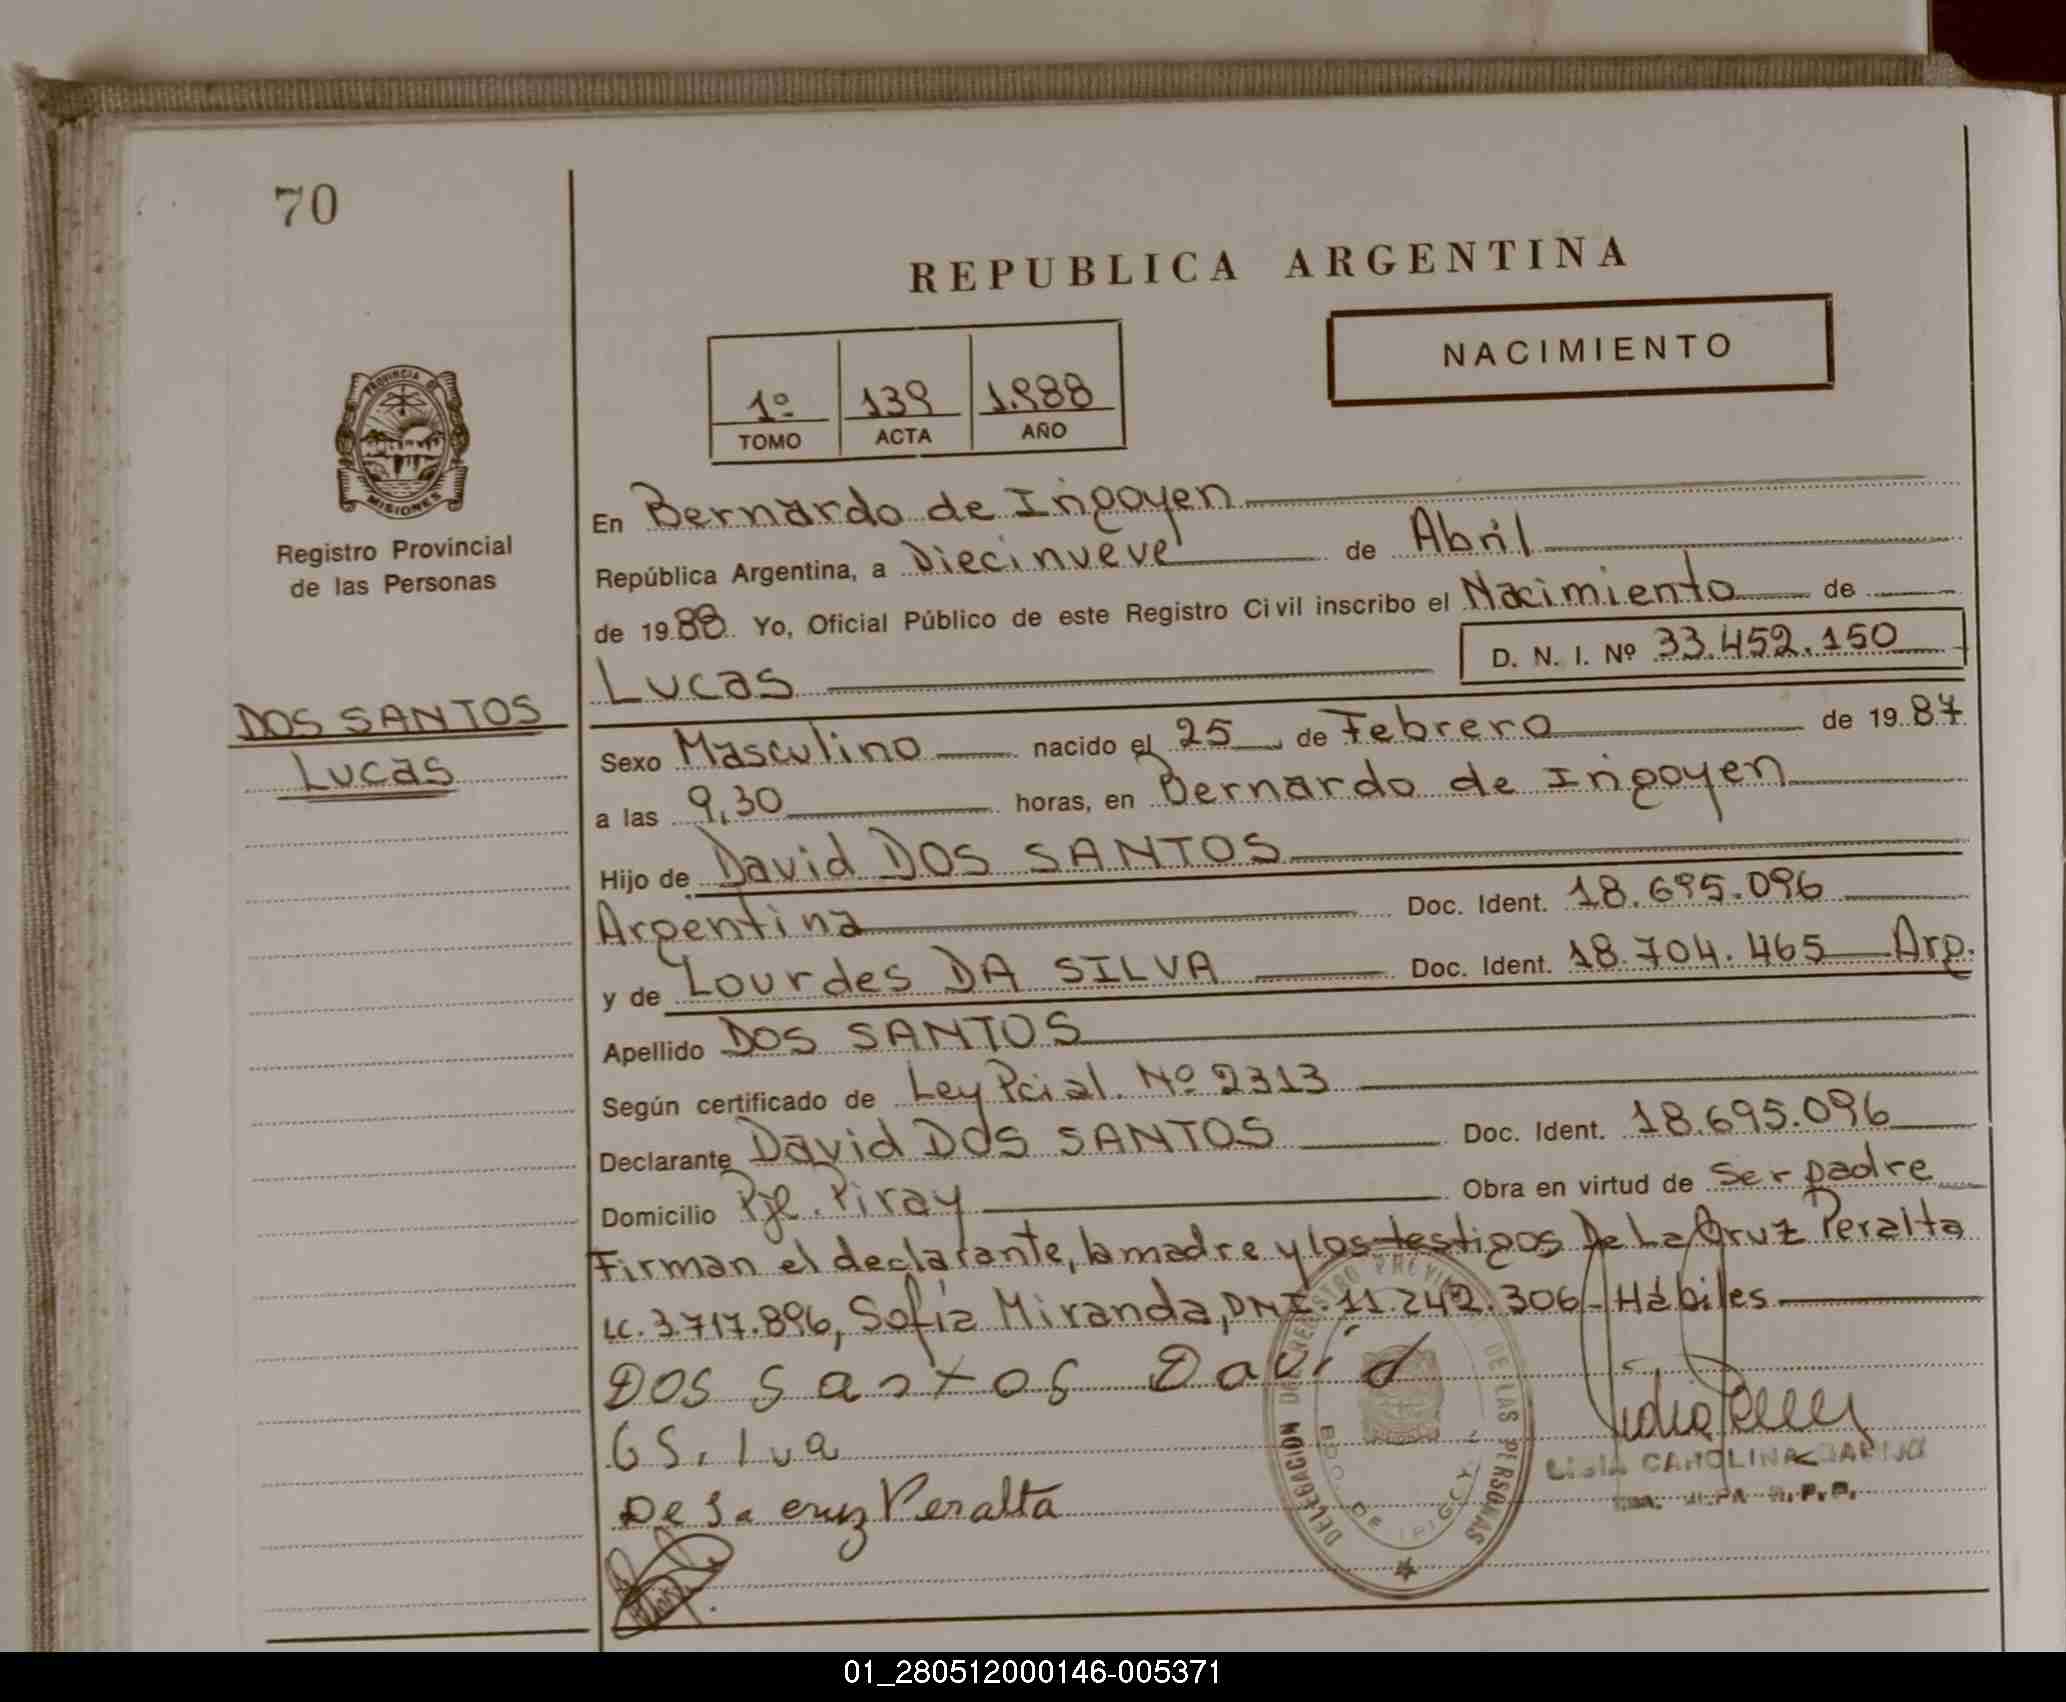 70
REPUBLICA ARGENTINA
NACIMIENTO
1º 139 1.988
TOMO ACTA AÑO
PROVINCIA DE
MISIONES
Registro Provincial
de las Personas
DOS SANTOS
Lucas
En Bernardo de Irigoyen
República Argentina, a Diecinueve de Abril
de 1988 Yo, Oficial Público de este Registro Civil inscribo el Nacimiento de
Lucas D. N. I. Nº 33.452.150
Sexo Masculino nacido el 25 de Febrero de 1987
a las 9,30 horas, en Bernardo de Irigoyen
Hijo de David DOS SANTOS
Argentina Doc. Ident. 18.695.096
y de Lourdes DA SILVA Doc. Ident. 18.704.465 Arg.
Apellido DOS SANTOS
Según certificado de Ley Pcial. Nº 2313
Declarante David DOS SANTOS Doc. Ident. 18.695.096
Domicilio Pje. Piray Obra en virtud de ser padre
Firman el declarante, la madre y los testigos De La Cruz Peralta
LC. 3.717.896, Sofía Miranda, DNI. 11.242.306 - Hábiles
DOS Santos David
De la cruz Peralta
DELEGACION DE REGISTRO PROVINCIAL DE LAS PERSONAS
BDO. DE IRIGOYEN
CAROLINA
01_280512000146-005371